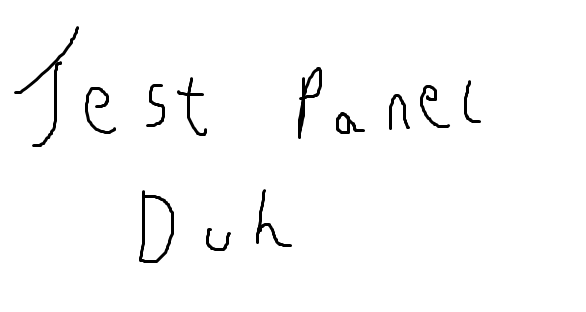 Test Panel
Duh